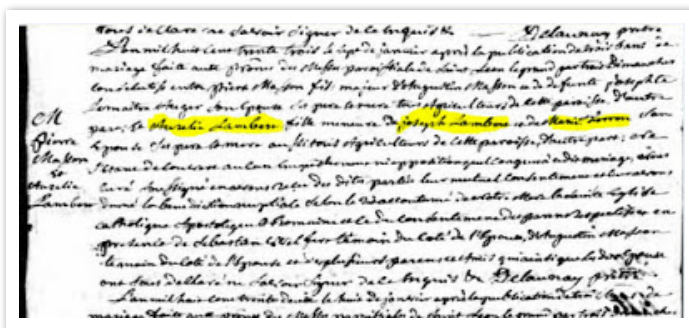 tous déclaré ne savoir signer de ce enquis &c — Delaunay ptre
L'an mil huit cent trente trois le sept de janvier après la publication de trois bans de
mariage faite aux prônes des Messes paroissiales de Saint Leon le grand par trois Dimanches
consécutifs entre Pierre Masson fils majeur d'Augustin Masson et de defunte Josephte
Lemaitre Auger son Epouse ses pere et mere tous Agriculteurs de cette paroisse, d'autre
part; et Aurelie Lambert fille mineure de Joseph Lambert et de Marie son
Epouse ses pere et mere aussi tous Agriculteurs de cette paroisse, d'autre part; et ne
s'étant découvert aucun empêchement ni opposition quelconque au dit mariage, nous
curé soussigné avons reçu des dites parties leur mutuel consentement et leur avons
donné la benediction nuptiale selon le rit accoutumé de notre Mere la Sainte Eglise
catholique Apostolique & Romaine et ce du consentement des parens respectifs en
presence de Sebastien temoin du coté de l'Epoux, d'Augustin Masson
temoin du coté de l'Epouse et de plusieurs parens et amis qui ainsi que les dits Epoux
ont tous déclaré ne savoir signer de ce enquis &c Delaunay ptre
L'an mil huit cent trente deux le huit de janvier après la publication de trois bans de
mariage faite aux prônes des Messes paroissiales de Saint Leon le grand par trois Dimanches
M
Pierre
Masson
et
Aurelie
Lambert